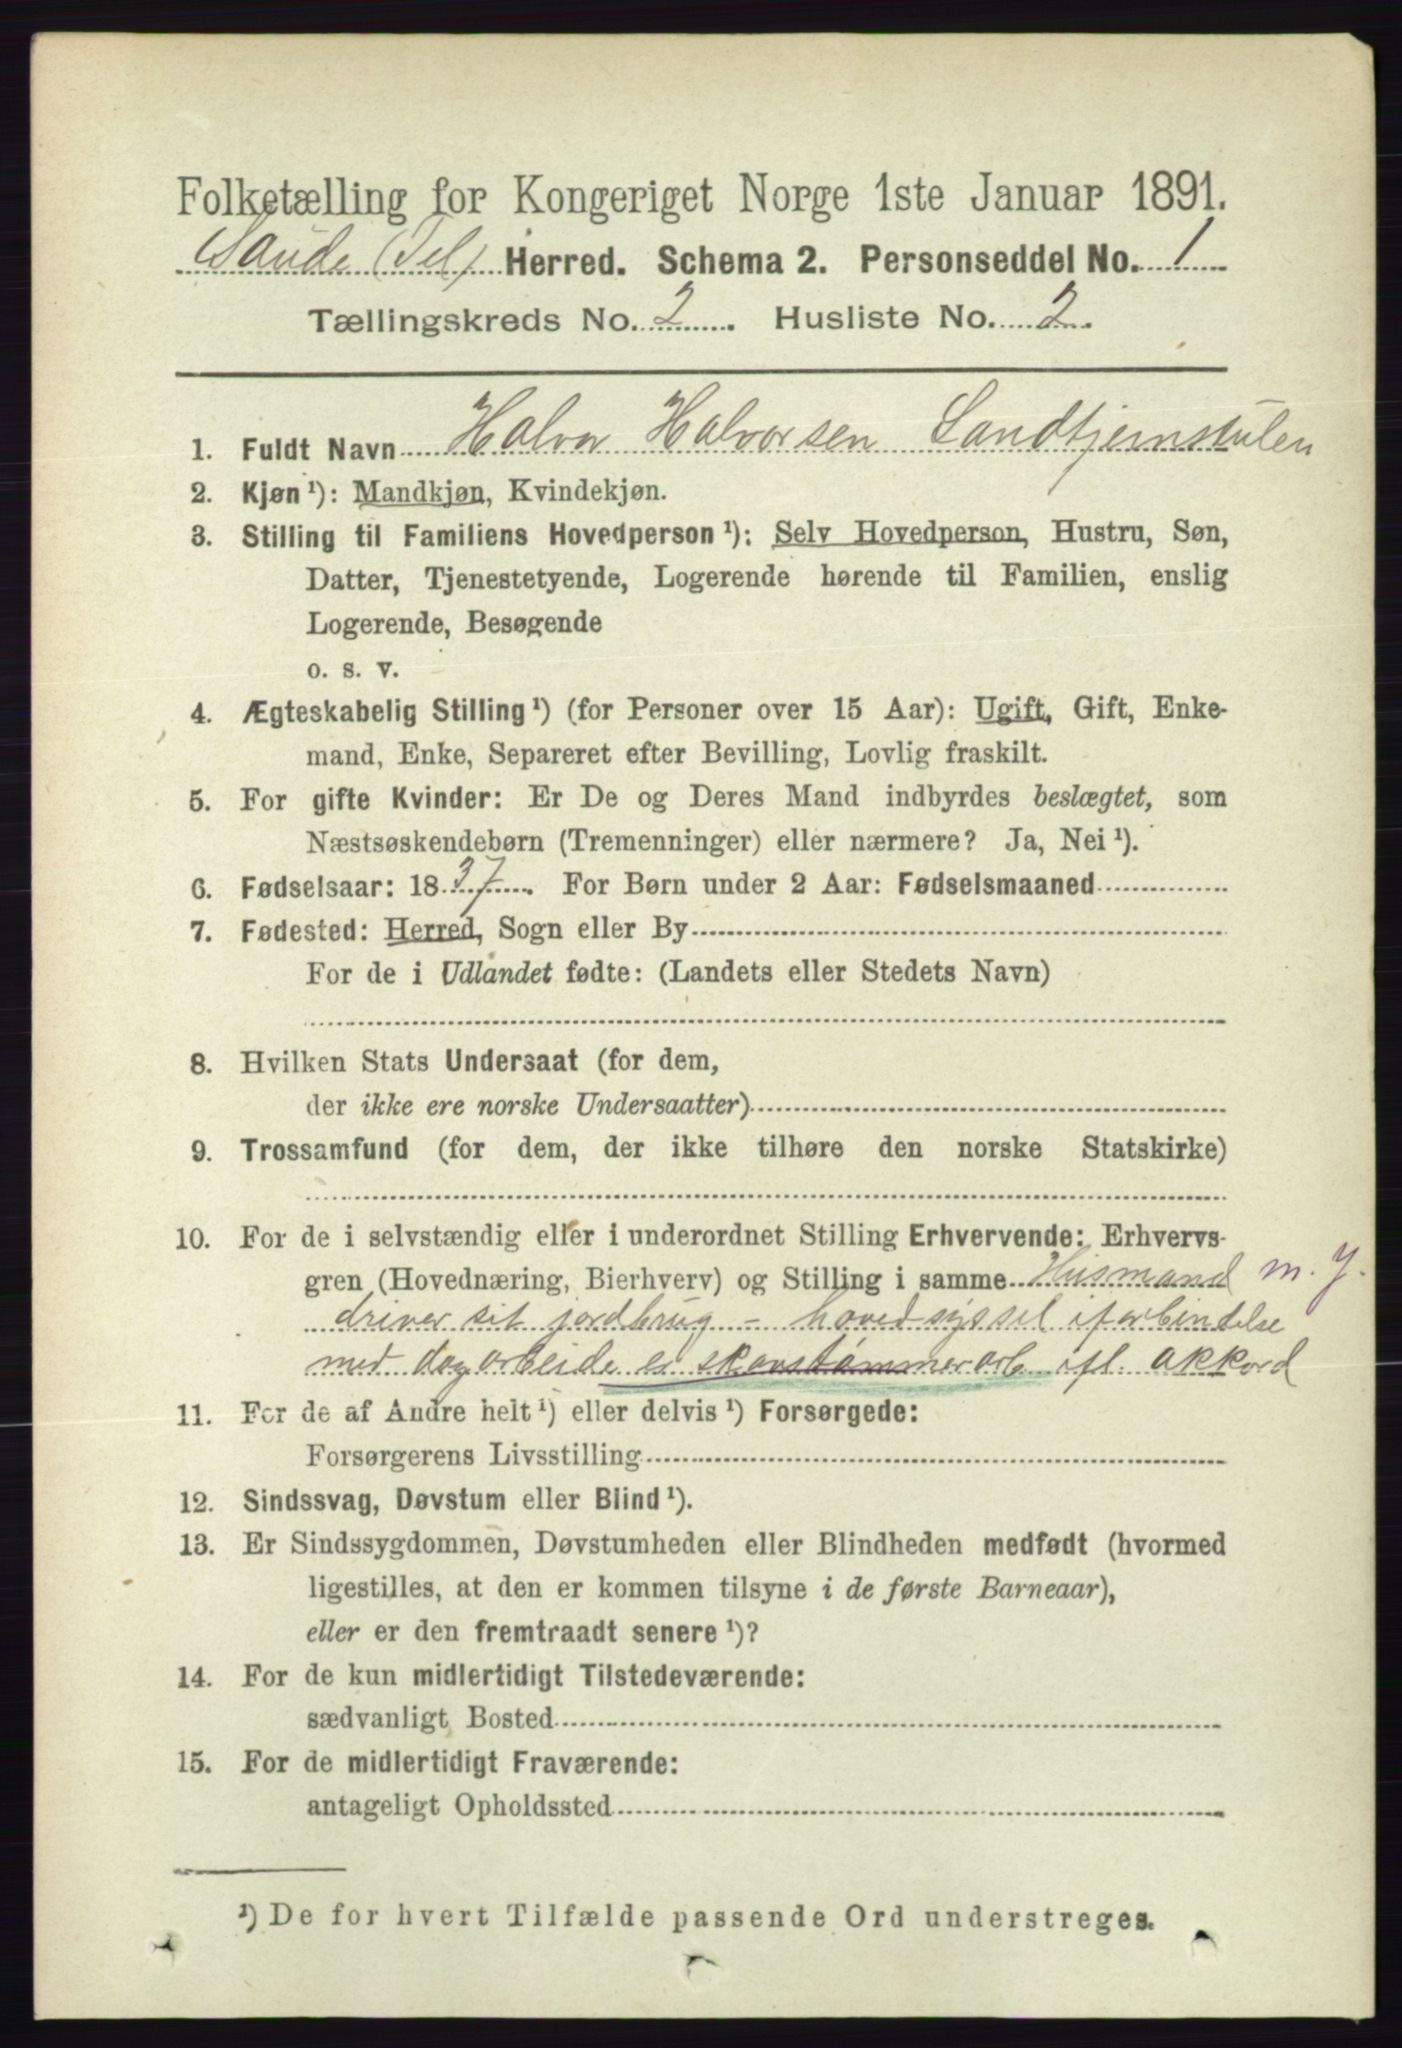 Folketælling for Kongeriget Norge 1ste Januar 1891.
Saude (Tel) Herred. Schema 2. Personseddel No. 1
Tællingskreds No. 2. Husliste No. 2.
1. Fuldt Navn Halvor Halvorsen Sandtjernstulen
2. Kjøn ¹): Mandkjøn, Kvindekjøn.
3. Stilling til Familiens Hovedperson ¹): Selv Hovedperson, Hustru, Søn,
Datter, Tjenestetyende, Logerende hørende til Familien, enslig
Logerende, Besøgende
o. s. v.
4. Ægteskabelig Stilling ¹) (for Personer over 15 Aar): Ugift, Gift, Enke-
mand, Enke, Separeret efter Bevilling, Lovlig fraskilt.
5. For gifte Kvinder: Er De og Deres Mand indbyrdes beslægtet, som
Næstsøskendebørn (Tremenninger) eller nærmere? Ja, Nei ¹).
6. Fødselsaar: 1837. For Børn under 2 Aar: Fødselsmaaned
7. Fødested: Herred, Sogn eller By
For de i Udlandet fødte: (Landets eller Stedets Navn)
8. Hvilken Stats Undersaat (for dem,
der ikke ere norske Undersaatter)
9. Trossamfund (for dem, der ikke tilhøre den norske Statskirke)
10. For de i selvstændig eller i underordnet Stilling Erhvervende: Erhvervs-
gren (Hovednæring, Bierhverv) og Stilling i samme Husmand m. J.
driver sit jordbrug - hovedsyssel i forbindelse
med dagarbeide er skovtømmerarb. efl. akkord
11. For de af Andre helt ¹) eller delvis ¹) Forsørgede:
Forsørgerens Livsstilling
12. Sindssvag, Døvstum eller Blind ¹).
13. Er Sindssygdommen, Døvstumheden eller Blindheden medfødt (hvormed
ligestilles, at den er kommen tilsyne i de første Barneaar),
eller er den fremtraadt senere ¹)?
14. For de kun midlertidigt Tilstedeværende:
sædvanligt Bosted
15. For de midlertidigt Fraværende:
antageligt Opholdssted
¹) De for hvert Tilfælde passende Ord understreges.